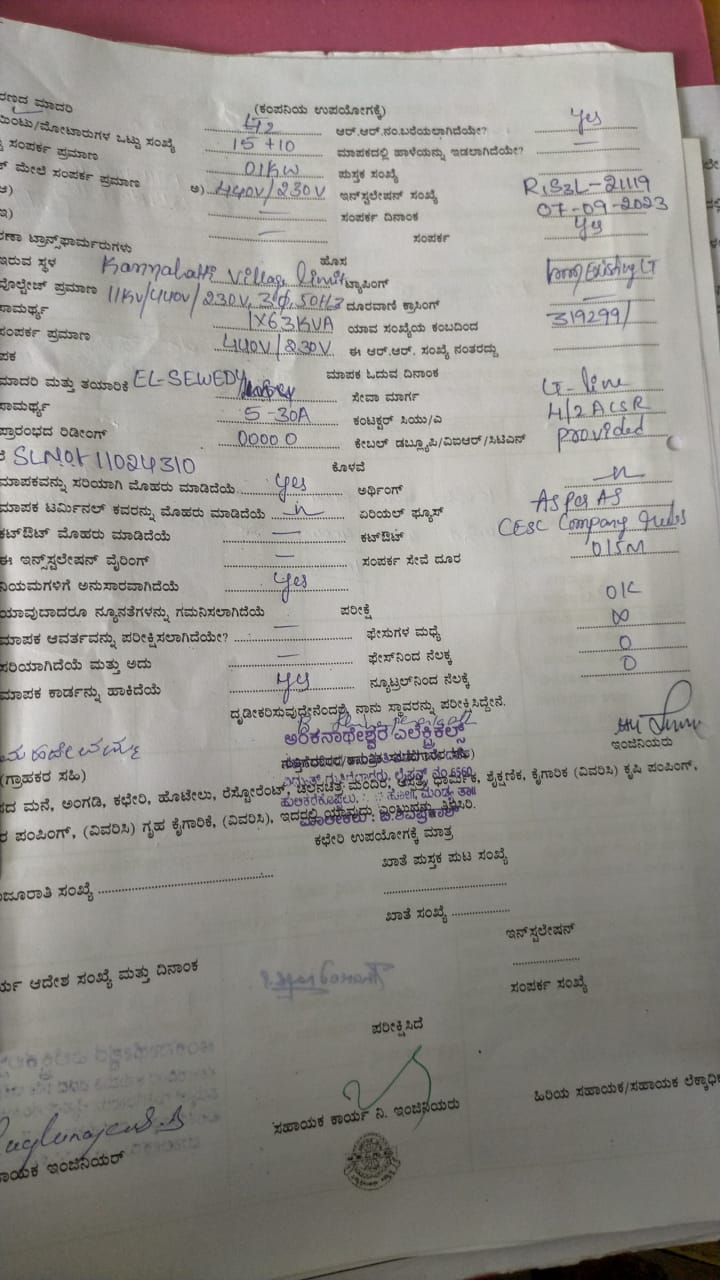 ರಣದ ಮಾದರಿ (ಕಂಪನಿಯ ಉಪಯೋಗಕ್ಕೆ)
ಯಿಂಟು/ಮೋಟಾರುಗಳ ಒಟ್ಟು ಸಂಖ್ಯೆ ಆರ್.ಆರ್.ನಂ.ಬರೆಯಲಾಗಿದೆಯೇ? Yes
ಸಂಪರ್ಕ ಪ್ರಮಾಣ 15 +10 ಮಾಪಕದಲ್ಲಿ ಹಾಳೆಯನ್ನು ಇಡಲಾಗಿದೆಯೇ? —
ಮೇಲೆ ಸಂಪರ್ಕ ಪ್ರಮಾಣ 01KW ಪುಸ್ತಕ ಸಂಖ್ಯೆ
ಅ) 440V/230V ಇನ್‌ಸ್ಟಲೇಷನ್ ಸಂಖ್ಯೆ
ಇ) — ಸಂಪರ್ಕ ದಿನಾಂಕ 07-09-2023
ಣಾ ಟ್ರಾನ್ಸ್‌ಫಾರ್ಮರುಗಳು — ಸಂಪರ್ಕ Yes
ಇರುವ ಸ್ಥಳ Village limit ಹೊಸ ಟ್ಯಾಪಿಂಗ್ from Existing LT
ವೋಲ್ಟೇಜ್ ಪ್ರಮಾಣ 11KV/440V/230V, 3Φ, 50HZ ದೂರವಾಣಿ ಕ್ರಾಸಿಂಗ್ —
ಸಾಮರ್ಥ್ಯ 1X63KVA ಯಾವ ಸಂಖ್ಯೆಯ ಕಂಬದಿಂದ 319299/
ಸಂಪರ್ಕ ಪ್ರಮಾಣ 440V/230V ಈ ಆರ್.ಆರ್. ಸಂಖ್ಯೆ ನಂತರದ್ದು
ಪಕ ಮಾಪಕ ಓದುವ ದಿನಾಂಕ
ಮಾದರಿ ಮತ್ತು ತಯಾರಿಕೆ EL-SEWEDY ಸೇವಾ ಮಾರ್ಗ LT-line
ಸಾಮರ್ಥ್ಯ 5-30A ಕಂಡಕ್ಟರ್ ಸಿಯು/ಎ 4/2 ACSR
ಪ್ರಾರಂಭದ ರಿಡೀಂಗ್ 00000 ಕೇಬಲ್ ಡಬ್ಲ್ಯೂಪಿ/ವಿಐಆರ್/ಸಿಟಿಎಸ್ provided
SLNO: 11024310 ಕೊಳವೆ
ಮಾಪಕವನ್ನು ಸರಿಯಾಗಿ ಮೊಹರು ಮಾಡಿದೆಯೆ Yes ಅರ್ಥಿಂಗ್
ಮಾಪಕ ಟರ್ಮಿನಲ್ ಕವರನ್ನು ಮೊಹರು ಮಾಡಿದೆಯೆ ಏರಿಯಲ್ ಫ್ಯೂಸ್ As per AS
ಕಟ್‌ಔಟ್ ಮೊಹರು ಮಾಡಿದೆಯೆ — ಕಟ್‌ಔಟ್ CESC Company
ಈ ಇನ್ಸ್‌ಟಲೇಷನ್ ವೈರಿಂಗ್ — ಸಂಪರ್ಕ ಸೇವೆ ದೂರ 015M
ನಿಯಮಗಳಿಗೆ ಅನುಸಾರವಾಗಿದೆಯೆ Yes
ಯಾವುಬಾದರೂ ನ್ಯೂನತೆಗಳನ್ನು ಗಮನಿಸಲಾಗಿದೆಯೆ ಪರೀಕ್ಷೆ OK
ಮಾಪಕ ಆವರ್ತವನ್ನು ಪರೀಕ್ಷಿಸಲಾಗಿದೆಯೇ? — ಫೇಸುಗಳ ಮಧ್ಯೆ ∞
ಸರಿಯಾಗಿದೆಯೆ ಮತ್ತು ಅದು — ಫೇಸ್‌ನಿಂದ ನೆಲಕ್ಕ 0
ಮಾಪಕ ಕಾರ್ಡನ್ನು ಹಾಕಿದೆಯೆ Yes ನ್ಯೂಟ್ರಲ್‌ನಿಂದ ನೆಲಕ್ಕೆ 0
ದೃಡೀಕರಿಸುವುದೇನೆಂದರೆ, ನಾನು ಸ್ಥಾವರನ್ನು ಪರೀಕ್ಷಿಸಿದ್ದೇನೆ.
ಅಂಕನಾಥೇಶ್ವರ ಎಲೆಕ್ಟ್ರಿಕಲ್ಸ್
(ಗ್ರಾಹಕರ ಸಹಿ) ಇಂಜಿನಿಯರು
ಸದ ಮನೆ, ಅಂಗಡಿ, ಕಛೇರಿ, ಹೊಟೇಲು, ರೆಸ್ಟೋರೆಂಟ್, ಚಲನಚಿತ್ರ ಮಂದಿರ, ಆಸ್ಪತ್ರೆ, ಧಾರ್ಮಿಕ, ಶೈಕ್ಷಣಿಕ, ಕೈಗಾರಿಕ (ವಿವರಿಸಿ) ಕೃಷಿ ಪಂಪಿಂಗ್,
ರ ಪಂಪಿಂಗ್, (ವಿವರಿಸಿ) ಗೃಹ ಕೈಗಾರಿಕೆ, (ವಿವರಿಸಿ), ಇದರಲ್ಲಿ ಯಾವುದು ಎಂಬುದನ್ನು ತಿಳಿಸಿರಿ.
ಕಛೇರಿ ಉಪಯೋಗಕ್ಕೆ ಮಾತ್ರ
ಜೂರಾತಿ ಸಂಖ್ಯೆ ಖಾತೆ ಪುಸ್ತಕ ಪುಟ ಸಂಖ್ಯೆ
ಖಾತೆ ಸಂಖ್ಯೆ
ಇನ್‌ಸ್ಟಲೇಷನ್
ರ್ಯ ಆದೇಶ ಸಂಖ್ಯೆ ಮತ್ತು ದಿನಾಂಕ ಸಂಪರ್ಕ ಸಂಖ್ಯೆ
ಪರೀಕ್ಷಿಸಿದೆ
ಸಹಾಯಕ ಕಾರ್ಯ ನಿ. ಇಂಜಿನಿಯರು ಹಿರಿಯ ಸಹಾಯಕ/ಸಹಾಯಕ ಲೆಕ್ಕಾಧಿಕ
ಾಯಕ ಇಂಜಿನಿಯರ್